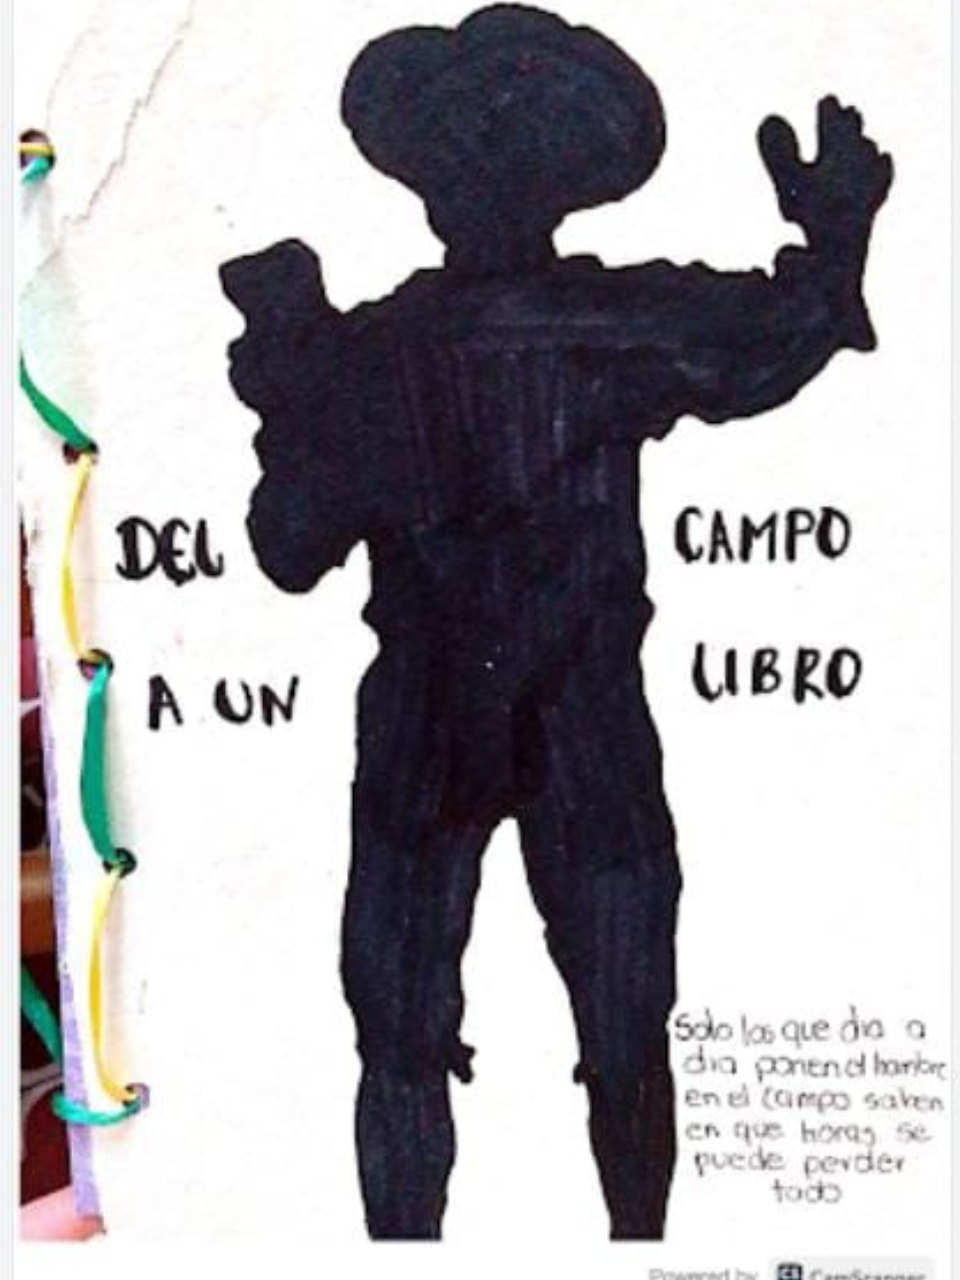 DEL CAMPO
A UN LIBRO
Solo los que dia a
dia ponen el hombre
en el campo saben
en que horas se
puede perder
todo
Powered by CS CamScanner